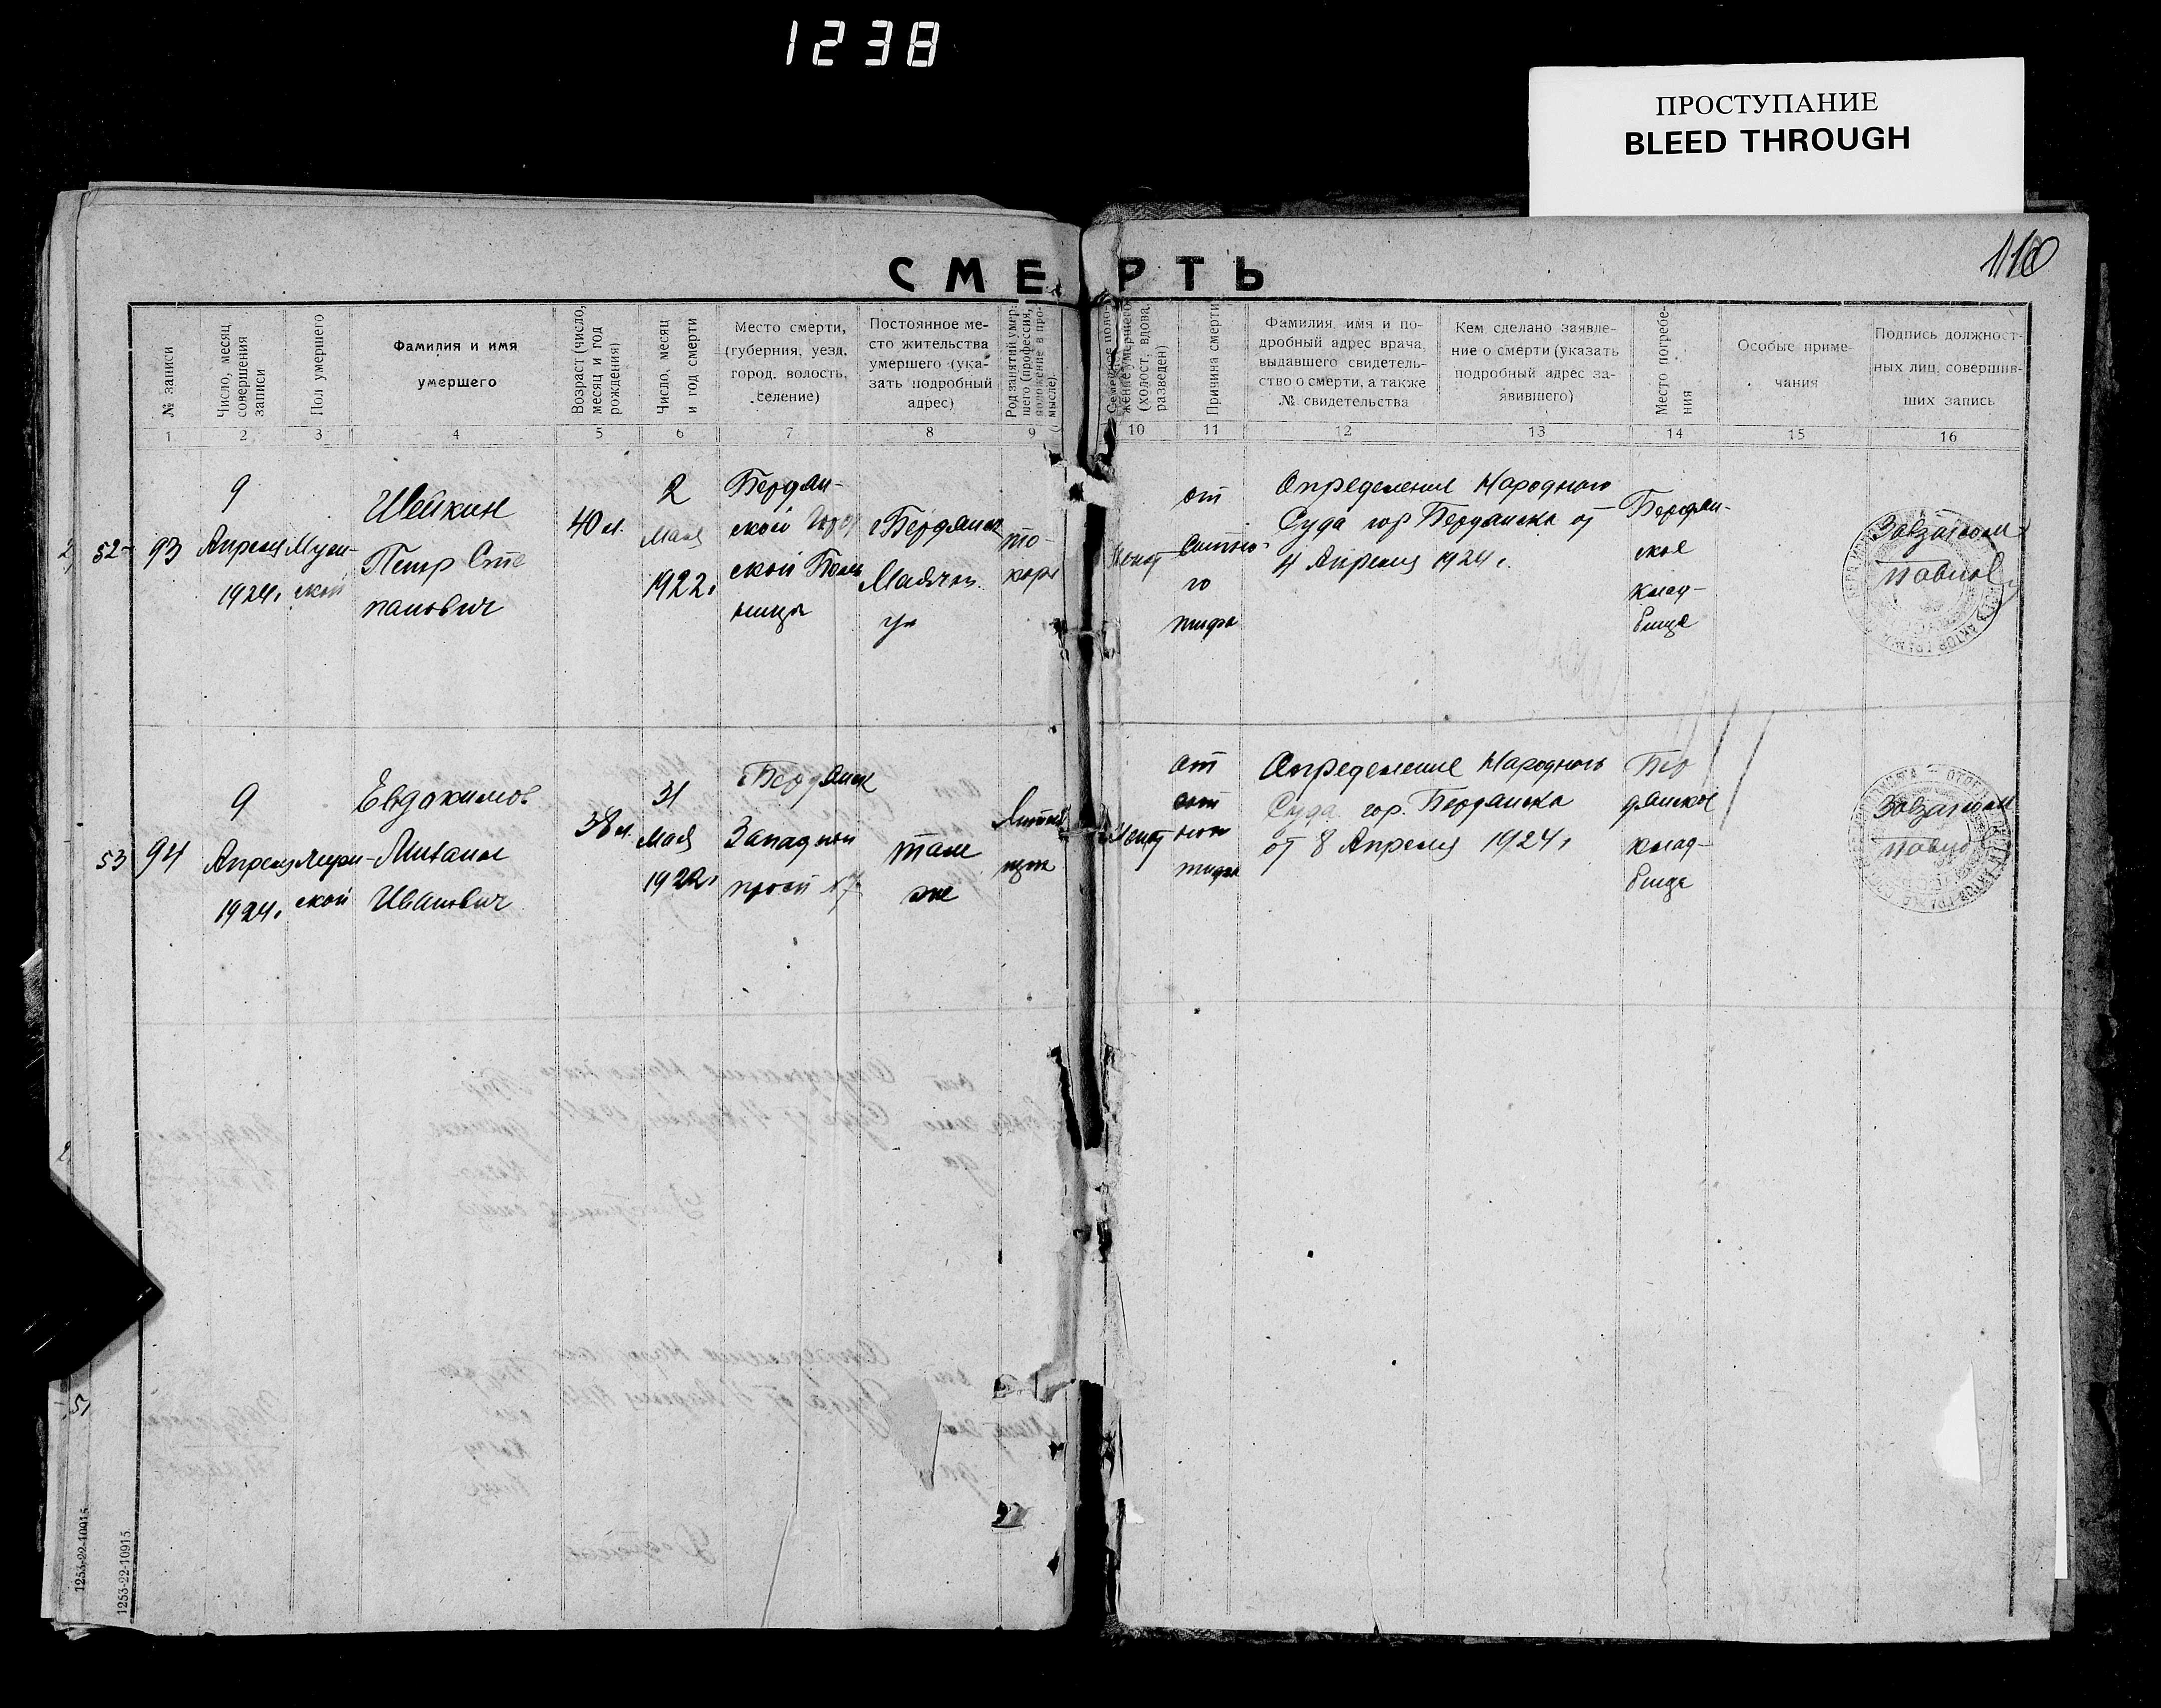 1238
ПРОСТУПАНИЕ
BLEED THROUGH
110
СМЕРТЬ
№ записи
Число, месяц
совершения
записи
Пол умершего
Фамилия и имя
умершего
Возраст (число,
месяц и год
рождения)
Число, месяц
и год смерти
Место смерти,
(губерния, уезд,
город, волость,
селение)
Постоянное ме-
сто жительства
умершего (ука-
зать подробный
адрес)
Род занятий умер-
шего (профессия,
положение в про-
мысле).
Семейное поло-
жение умершего
(холост, вдова,
разведен)
Причина смерти
Фамилия, имя и по-
дробный адрес врача,
выдавшего свидетель-
ство о смерти, а также
№ свидетельства
Кем сделано заявле-
ние о смерти (указать
подробный адрес за-
явившего)
Место погребе-
ния
Особые приме-
чания
Подпись должност-
ных лиц, совершив-
ших запись
1 2 3 4 5 6 7 8 9 10 11 12 13 14 15 16
52- 93
9
Апреля
1924г
Муж-
ской
Шейкин
Петр Сте
панович
40 л.
2
Мая
1922г
Бердян-
ской Город
ской Боль
ницы
г Бердянск
Маячн.
ул
то-
карь
женат
от
сыпно-
го
тифа
Определение Народного
Суда гор Бердянска от
4 Апреля 1924 г.
Бердян-
ское
клад-
бище
Завзагсом
Павлов
53 94
9
Апреля
1924г
Муж-
ской
Евдокимов
Михаил
Иванович
38 л.
31
Мая
1922г
Бердянск
Западный
прой 17
там
же
женат
от
тифа
Определение Народного
Суда гор. Бердянска
от 8 Апреля 1924г
Бер
дянское
клад-
бище
Завзагсом
Павлов
2
51
1253-22-10915
1253-22-10915